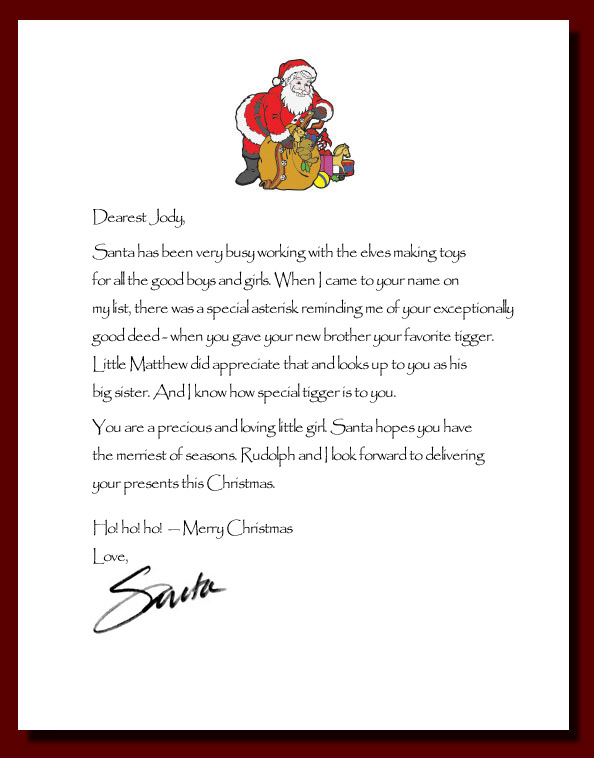 Dearest Jody,
Santa has been very busy working with the elves making toys
for all the good boys and girls. When I came to your name on
my list, there was a special asterisk reminding me of your exceptionally
good deed - when you gave your new brother your favorite tigger.
Little Matthew did appreciate that and looks up to you as his
big sister. And I know how special tigger is to you.
You are a precious and loving little girl. Santa hopes you have
the merriest of seasons. Rudolph and I look forward to delivering
your presents this Christmas.
Ho! ho! ho! — Merry Christmas
Love,
Santa